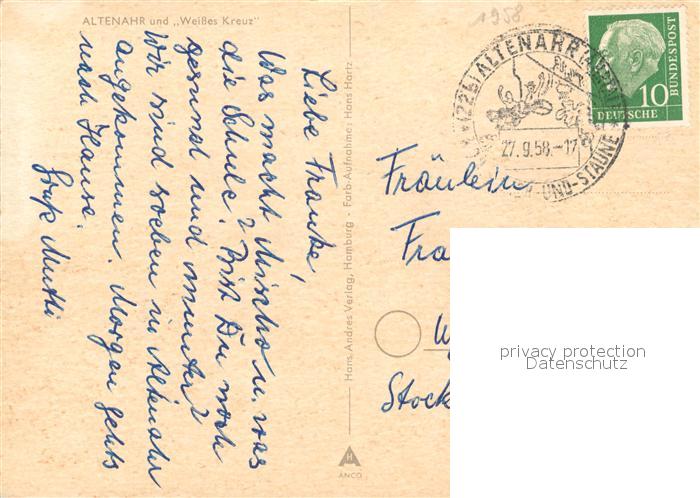 ALTENAHR und „Weißes Kreuz"
Liebe Frauke,
Was macht Mischa u. was
die Schule? Bist Du noch
gesund und munter?
Wir sind soeben in Altenahr
angekommen. Morgen gehts
nach Hause.
Gruß Mutti
Hans Andres Verlag, Hamburg - Farb-Aufnahme: Hans Hartz
ANCO
1958
(22b) ALTENAHR
27.9.58.-17
UND-STAUNE
10
DEUTSCHE
BUNDESPOST
Fräulein
Fra
W
Stock
privacy protection
Datenschutz